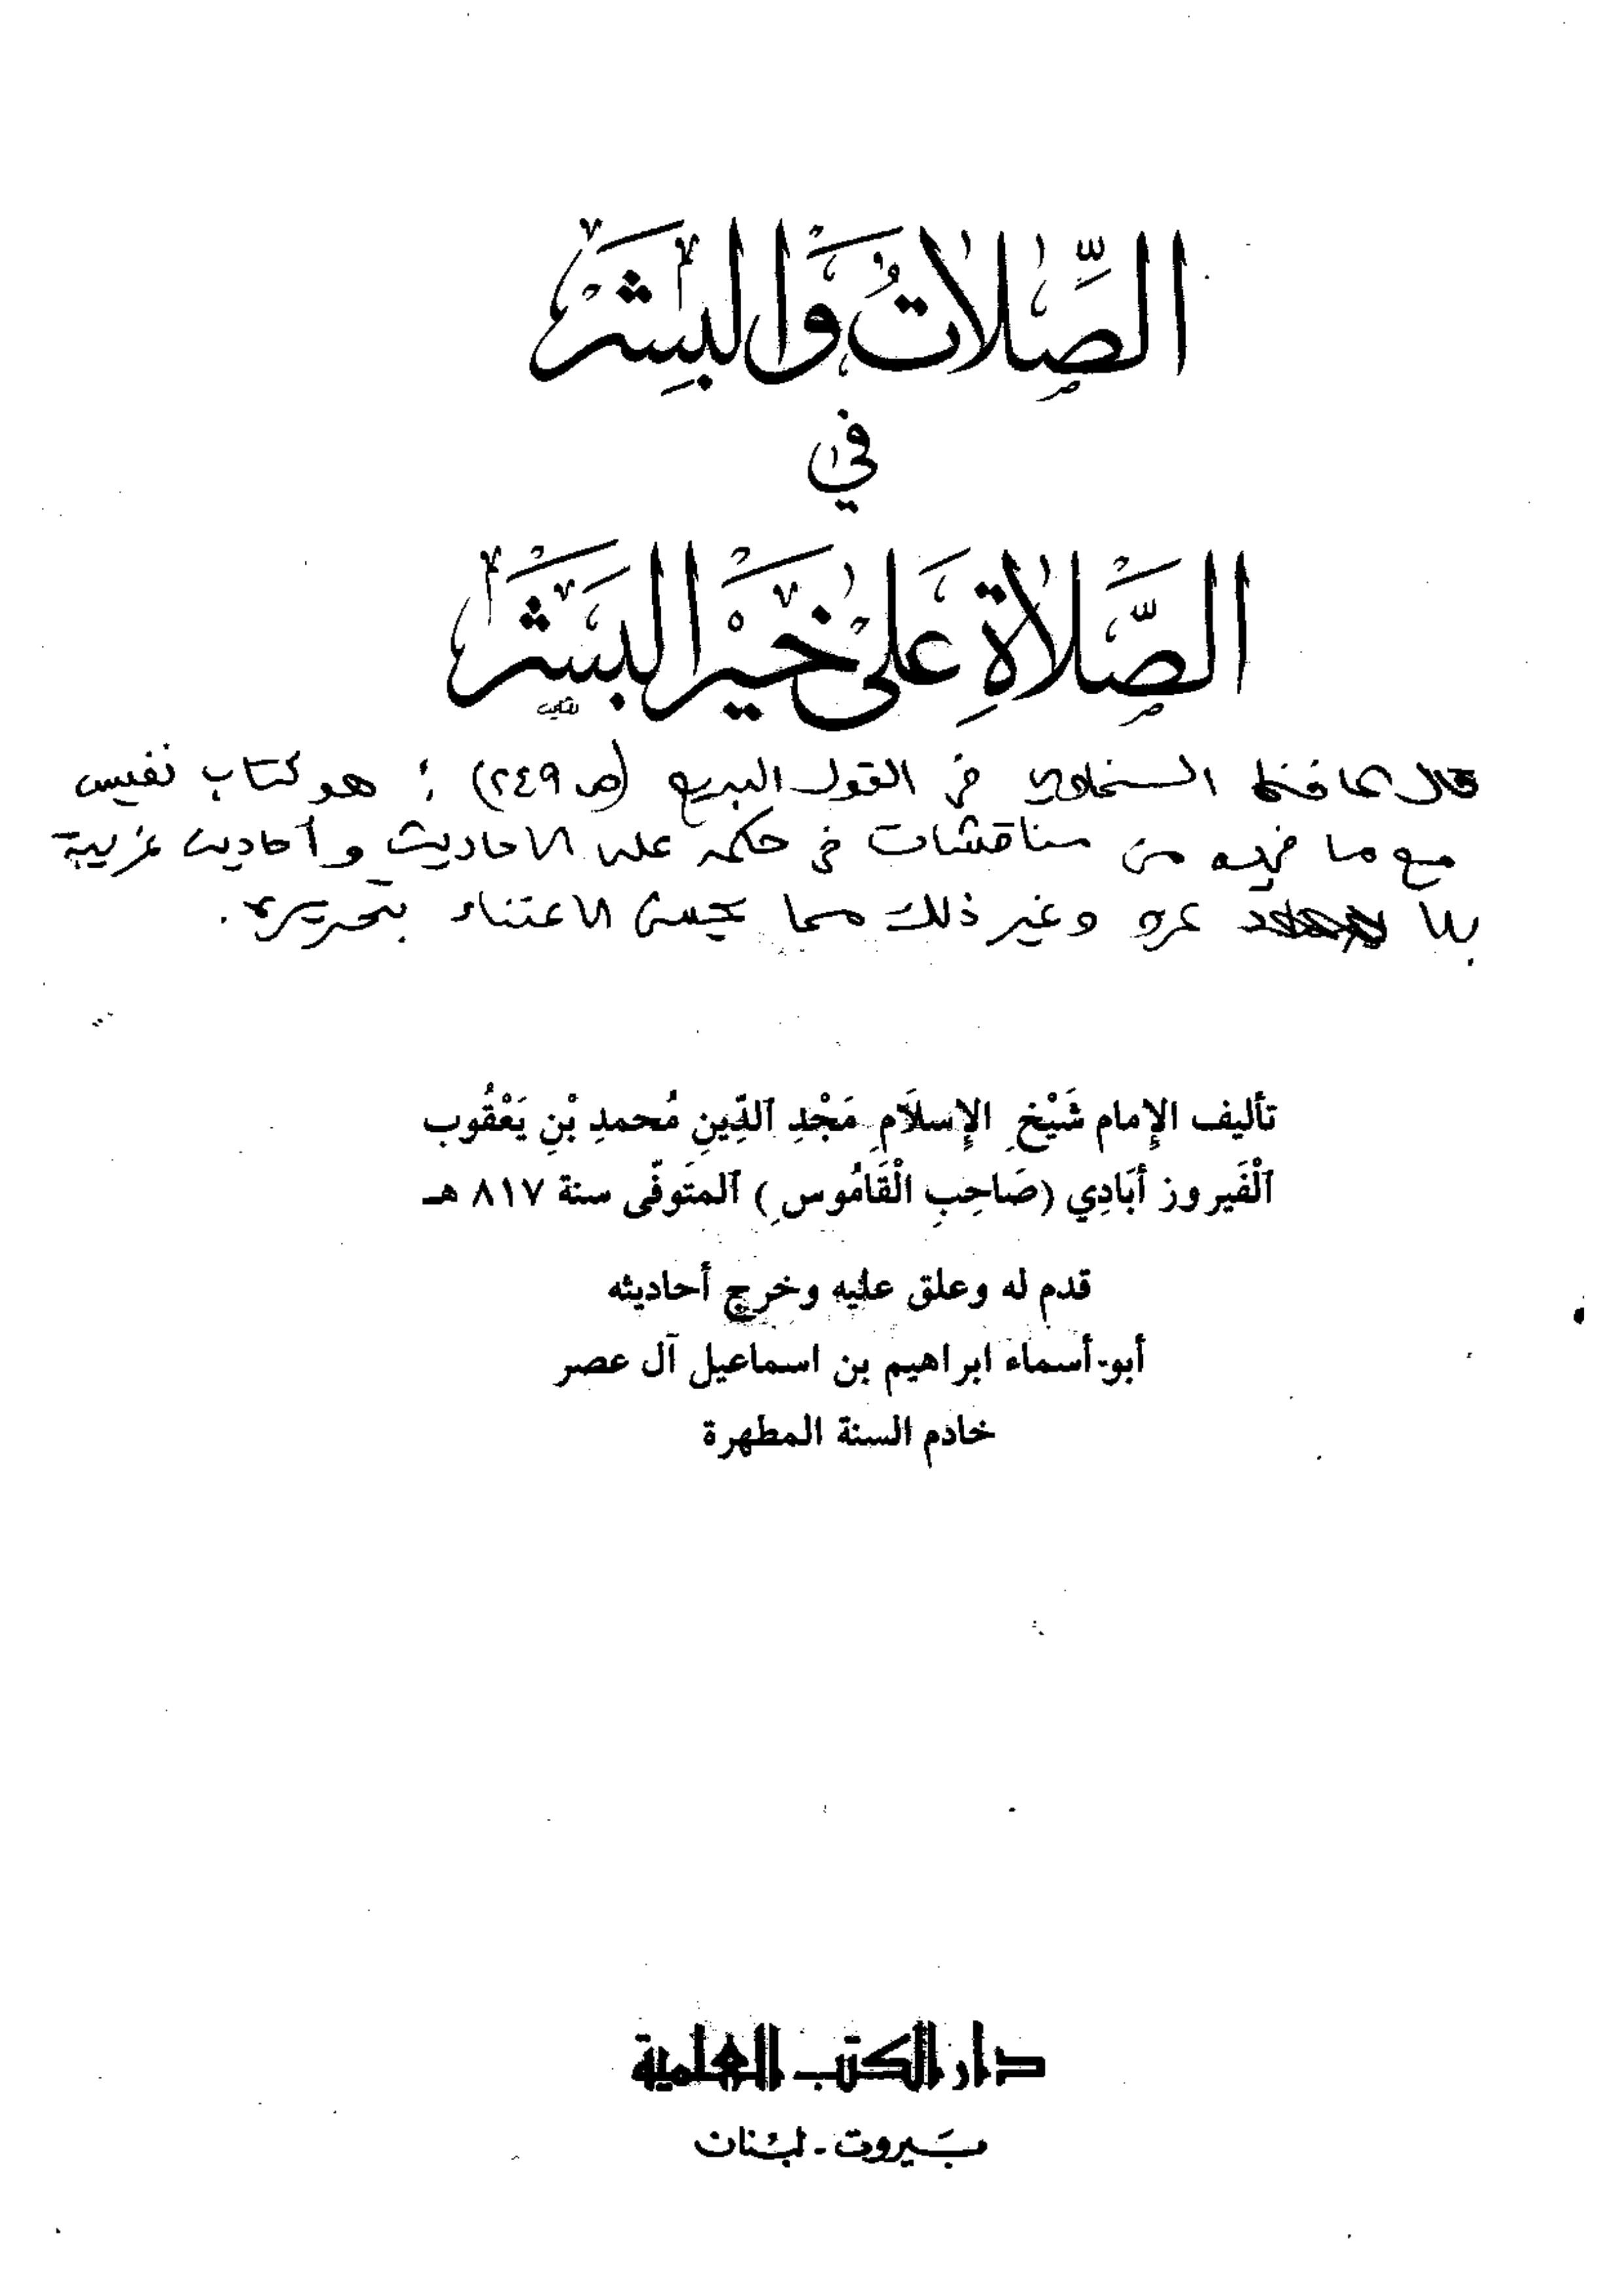 الصِّلاتُ وَالبِشَر
في
الصَّلاَةِ عَلى خَيْرِ البَشَر
قال الحافظ السخاوي في القول البديع (ص ٢٤٩) : هو كتاب نفيس
مع ما فيه من مناقشات في حكمه على الاحاديث وأحاديث غريبة
بلا عزو وغير ذلك مما يحسن الاعتناء بتحريره .
تأليف الإمام شَيْخِ الإِسلَامِ مَجْدِ ٱلدِّينِ مُحمدِ بْنِ يَعْقُوب
ٱلْفَيروز أَبَادِي (صَاحِبِ الْقَامُوسِ) ٱلمتَوفّى سنة ٨١٧ هـ
قدم له وعلق عليه وخرج أحاديثه
أبو-أسماء ابراهيم بن اسماعيل آل عصر
خادم السنة المطهرة
دار الكتب العلمية
بَيروت - لبْنان